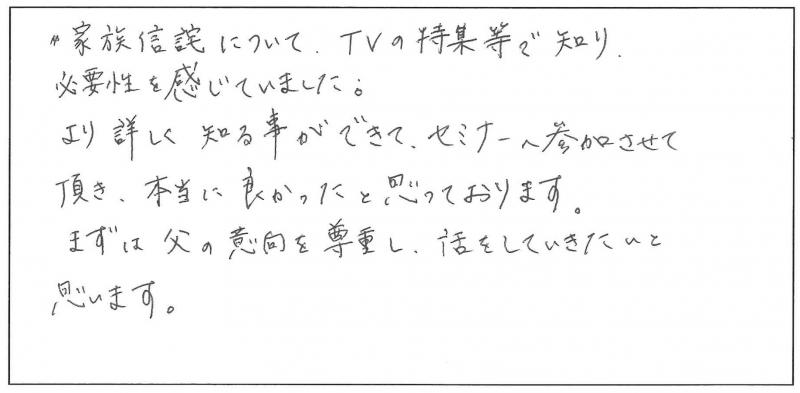 〃家族信託について、TVの特集等で知り、
必要性を感じていました。
より詳しく知る事ができて、セミナーへ参加させて
頂き、本当に良かったと思っております。
まずは父の意向を尊重し、話をしていきたいと
思います。